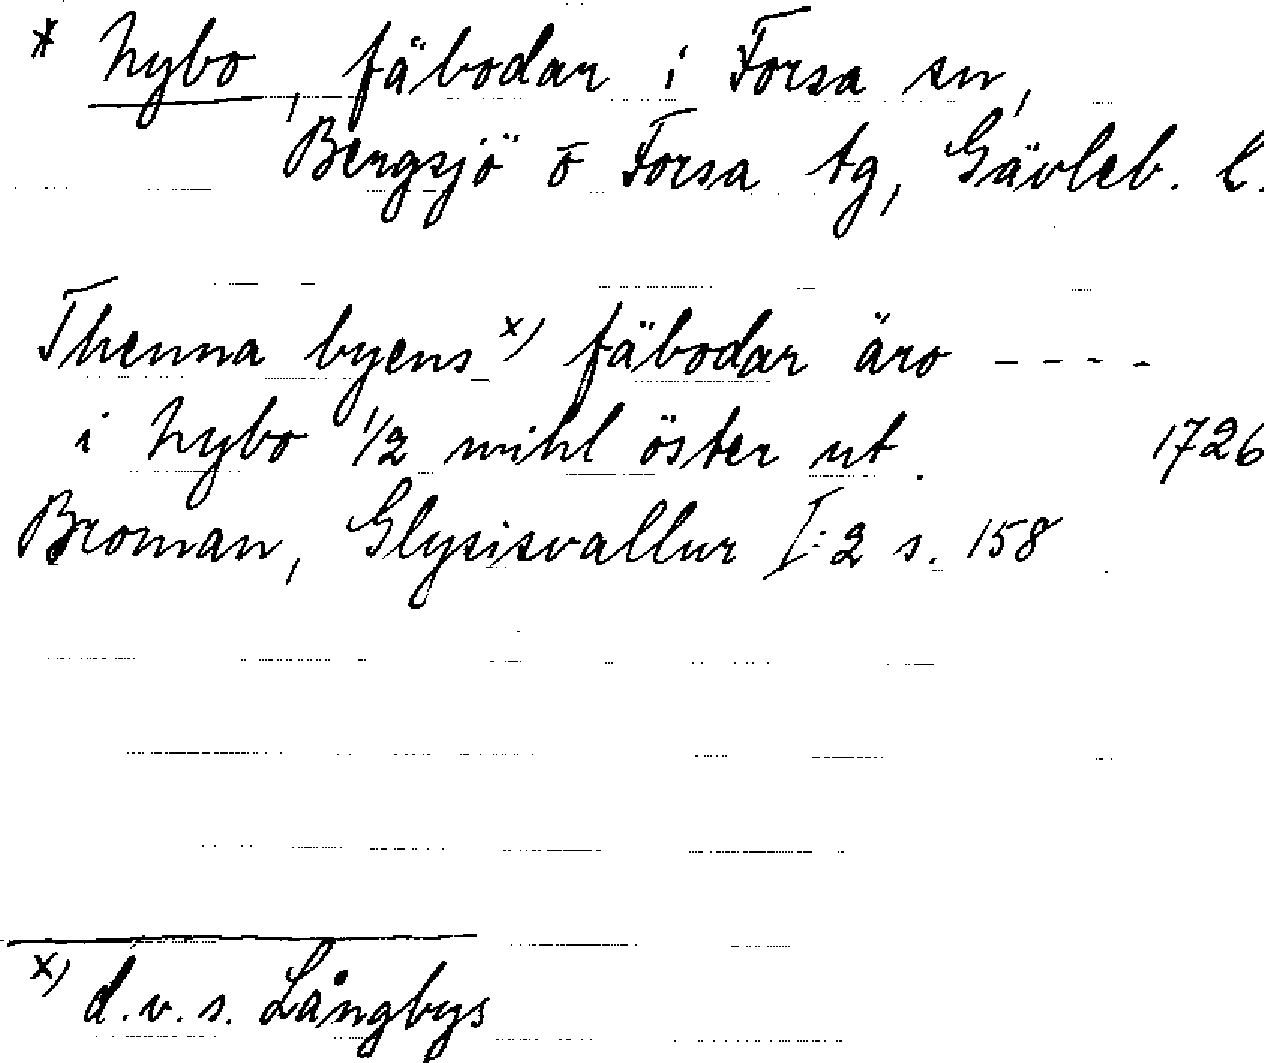 * Nybo, fäbodar i Forsa sn,
Bergsjö o Forsa tg, Gävleb. l.
Thenna byens x) fäbodar äro ----
i Nybo 1/2 mihl öster ut. 1726
Broman, Glysisvallur I:2 s. 158
x) d.v.s. Långbys